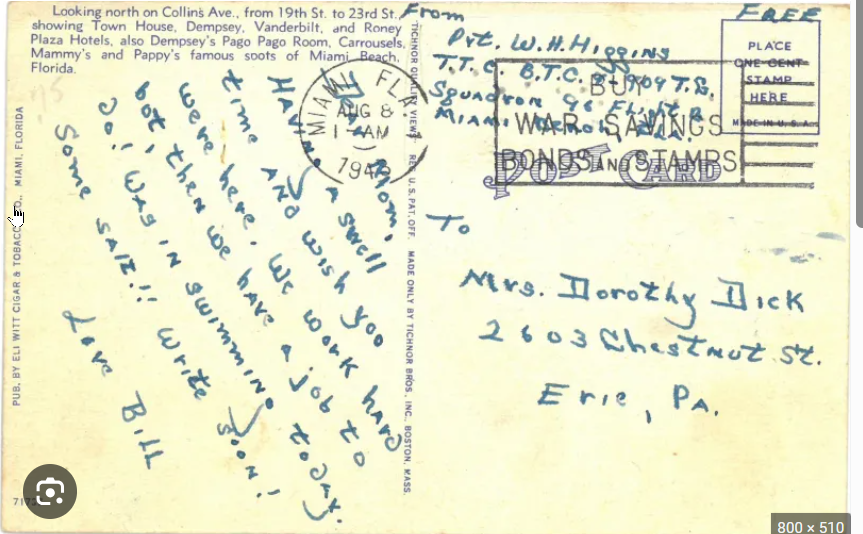 Looking north on Collins Ave., from 19th St. to 23rd St.,
showing Town House, Dempsey, Vanderbilt, and Roney
Plaza Hotels, also Dempsey's Pago Pago Room, Carrousels,
Mammy's and Pappy's famous soots of Miami Beach,
Florida.
From
Pvt. W.H. Higgins
T.T.C. B.T.C. 909 T.S.
Squadron 96 Flight
Miami
FREE
PLACE
ONE CENT
STAMP
HERE
MADE IN U.S.A.
MIAMI FLA.
AUG 8
1-AM
194
BUY
WAR SAVINGS
BONDS AND STAMPS
POST CARD
Mom,
Having a swell
time and wish you
were here. We work hard
but, then we have a job to
do! Was in swimming today.
Some salt!! Write soon!
Love Bill
To
Mrs. Dorothy Dick
2603 Chestnut St.
Erie, Pa.
PUB. BY ELI WITT CIGAR & TOBACCO CO., MIAMI, FLORIDA
TICHNOR QUALITY VIEWS REG. U.S. PAT. OFF. MADE ONLY BY TICHNOR BROS., INC. BOSTON, MASS.
800 × 510